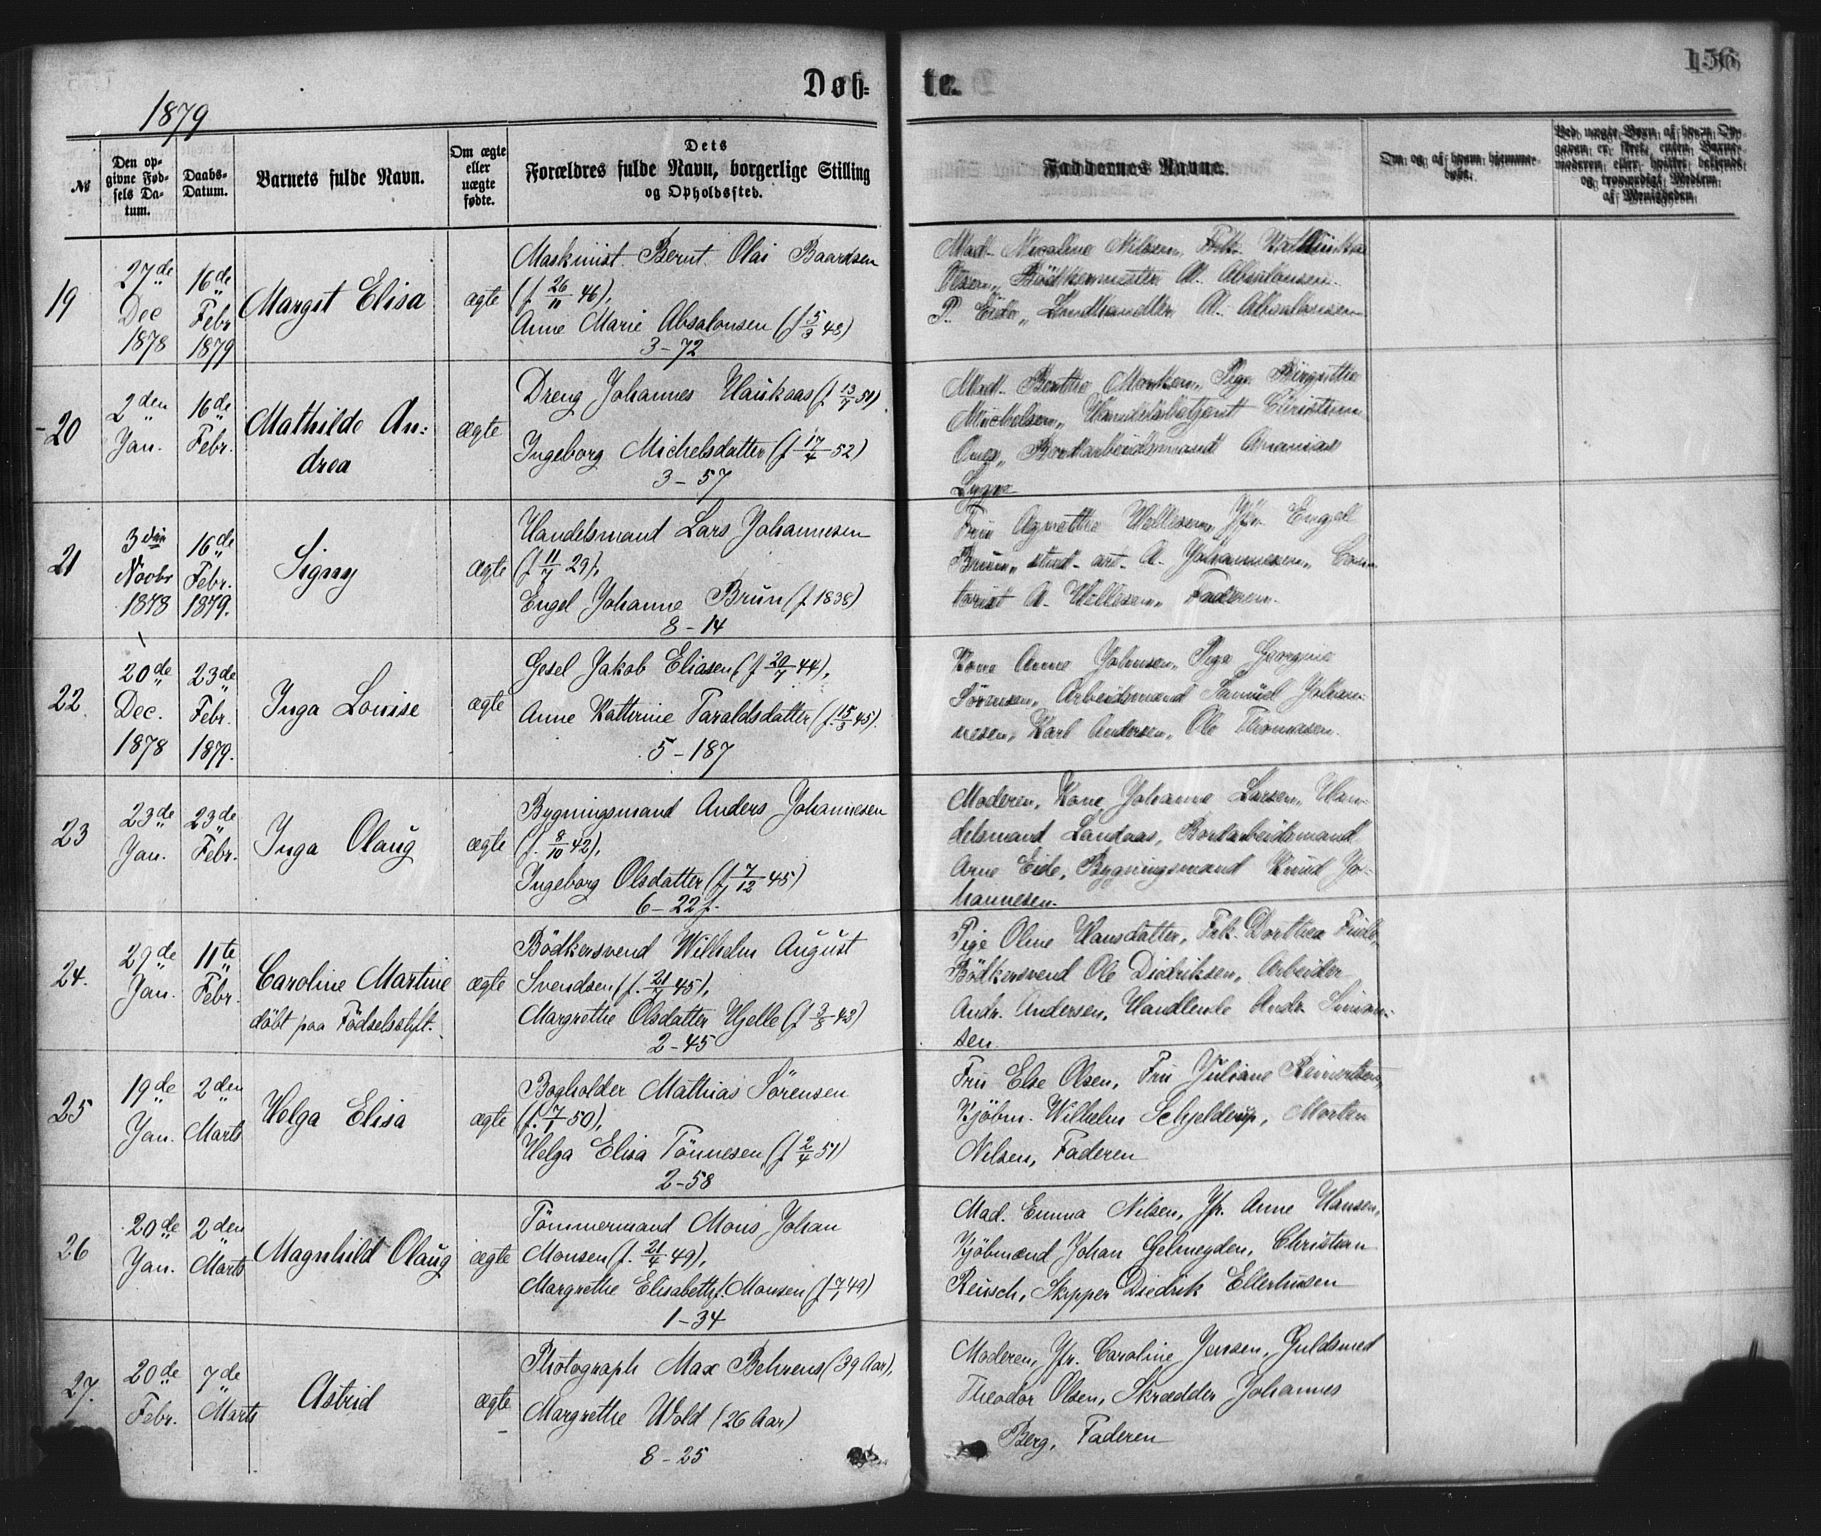 156
Døb-
te.
1879
№
Den op-
givne Fød-
sels Da-
tum.
Daabs-
Datum.
Barnets fulde Navn.
Om ægte
eller
uægte
fødte.
Dets
Forældres fulde Navn, borgerlige Stilling
og Opholdssted.
Faddernes Navne.
Om og af hvem hjemme-
døbt.
Ved uægte Børn af hvem Op-
gaven er sket, enten Barne-
moderen eller hvilket bekjendt
og troværdigt Medlem
af Menigheden.
19
27de
Dec
1878
16de
Febr
1879
Margit Elisa
ægte
Maskinist Bernt Olai Baardsen
(f. 26/11 46),
Anne Marie Absalonsen (f 5/3 43)
3-72
Mad. Nicoline Nilsen, Frk. Kathinka
Olsen, Bödkermester A. Absalonsen
P. Eide, Landhandler A. Absalonsen
20
2den
Jan.
16de
Febr.
Mathilde An:
drea
ægte
Dreng Johannes Haukaas (f 13/7 51)
Ingeborg Michelsdatter (f 17/4 52)
3-57
Mad. Benthe Monsen, Pige Birgitthe
Michelsen, Handelsbetjent Christian
Bordarbeidsmand Ananias
Lygre
21
3die
Novbr
1878
16de
Febr.
1879.
Signy
ægte
Handelsmand Lars Johannesen
(f 11/7 29),
Engel Johanne Brun (f. 1838)
8-14
Fru Agnethe Wellesen, Jfr. Engel
Brun, stud. art. A. Johannesen, Con-
torist A. Wellesen, Faderen.
22.
20de
Dec.
1878
23de
Febr.
1879.
Inga Louise
ægte
Gesel Jakob Eliasen (f 20/7 44),
Anne Katterine Taraldsdatter (f. 15/3 45).
5-187
Kone Anne Johnsen, Pige Georgine
Sörensen, Arbeidsmand Samuel Johan-
nesen, Karl Andersen, Ole Thomasen.
23
23de
Jan.
23de
Febr.
Inga Olaug
ægte
Bygningsmand Anders Johannesen
(f. 8/10 42),
Ingeborg Olsdatter (f 7/12 45)
6-22f.
Moderen, Kone Johanne Larsen, Han-
delsmand Landaas, Bordarbeidsmand
Arne Eide, Bygningsmand Knud Jo-
hannesen.
24.
29de
Jan.
11te
Febr.
Caroline Martine
döbt paa Födselsstift.
ægte
Bödkersvend Wilhelm August
Svendsen (f. 21/7 45),
Margrethe Olsdatter Hjelle (f 3/8 43)
2-45
Pige Oline Hansdatter, Frk. Dorthea Friele,
Bödkersvend Ole Diedriksen, Arbeider
Andr. Andersen, Handlende Andr. Simon-
sen.
25
19de
Jan.
2den
Marts
Helga Elisa
ægte
Bogholder Mathias Sörensen
(f. 7/1 50),
Helga Elisa Tönnesen (f 2/4 51)
2-58
Fru Else Olsen, Fru Juliane Reimertsen,
Kjöbm. Wilhelm Schjelderup, Morten
Nilsen, Faderen
26
20de
Jan.
2den
Marts
Magnhild Olaug
ægte
Tömmermand Mons Johan
Monsen (f. 21/4 49),
Margrethe Elisabeth f. Monsen (f 7/1 49)
1-34
Mad. Emma Nilsen, Jfr. Anne Hansen,
Kjöbmænd Johan Gelmeyden, Christian
Reusch, Skipper Diedrik Ellerhusen
27.
20de
Febr.
7de
Marts
Astrid
ægte
Photograph Max Behrens (39 Aar),
Margrethe Wold (26 Aar)
8-25
Moderen, Jfr. Caroline Jensen, Guldsmed
Theodor Olsen, Skrædder Johannes
Berg, Faderen